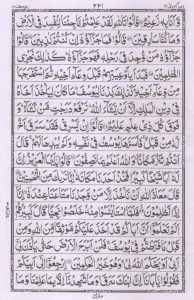 ٢٢١
وَّاَنَا بِهٖ زَعِيْمٌ قَالُوْا تَاللّٰهِ لَقَدْ عَلِمْتُمْ مَّا جِئْنَا لِنُفْسِدَ فِي الْاَرْضِ
وَمَا كُنَّا سٰرِقِيْنَ قَالُوْا فَمَا جَزَآؤُهٗٓ اِنْ كُنْتُمْ كٰذِبِيْنَ قَالُوْا
جَزَآؤُهٗ مَنْ وُّجِدَ فِيْ رَحْلِهٖ فَهُوَ جَزَآؤُهٗ كَذٰلِكَ نَجْزِي
الظّٰلِمِيْنَ فَبَدَاَ بِاَوْعِيَتِهِمْ قَبْلَ وِعَآءِ اَخِيْهِ ثُمَّ اسْتَخْرَجَهَا
مِنْ وِّعَآءِ اَخِيْهِ كَذٰلِكَ كِدْنَا لِيُوْسُفَ مَا كَانَ لِيَاْخُذَ اَخَاهُ
فِيْ دِيْنِ الْمَلِكِ اِلَّآ اَنْ يَّشَآءَ اللّٰهُ نَرْفَعُ دَرَجٰتٍ مَّنْ نَّشَآءُ
وَفَوْقَ كُلِّ ذِيْ عِلْمٍ عَلِيْمٌ قَالُوْٓا اِنْ يَّسْرِقْ فَقَدْ سَرَقَ اَخٌ
لَّهٗ مِنْ قَبْلُ فَاَسَرَّهَا يُوْسُفُ فِيْ نَفْسِهٖ وَلَمْ يُبْدِهَا لَهُمْ
قَالَ اَنْتُمْ شَرٌّ مَّكَانًا وَاللّٰهُ اَعْلَمُ بِمَا تَصِفُوْنَ قَالُوْا يٰٓاَيُّهَا
الْعَزِيْزُ اِنَّ لَهٗٓ اَبًا شَيْخًا كَبِيْرًا فَخُذْ اَحَدَنَا مَكَانَهٗ اِنَّا نَرٰىكَ مِنَ الْمُحْسِنِيْنَ
قَالَ مَعَاذَ اللّٰهِ اَنْ نَّاْخُذَ اِلَّا مَنْ وَّجَدْنَا مَتَاعَنَا عِنْدَهٗٓ اِنَّآ
اِذًا لَّظٰلِمُوْنَ فَلَمَّا اسْتَيْئَسُوْا مِنْهُ خَلَصُوْا نَجِيًّا قَالَ كَبِيْرُهُمْ
اَلَمْ تَعْلَمُوْٓا اَنَّ اَبَاكُمْ قَدْ اَخَذَ عَلَيْكُمْ مَّوْثِقًا مِّنَ اللّٰهِ وَمِنْ
قَبْلُ مَا فَرَّطْتُّمْ فِيْ يُوْسُفَ فَلَنْ اَبْرَحَ الْاَرْضَ حَتّٰى يَاْذَنَ لِيْٓ
اَبِيْٓ اَوْ يَحْكُمَ اللّٰهُ لِيْ وَهُوَ خَيْرُ الْحٰكِمِيْنَ اِرْجِعُوْٓا اِلٰٓى اَبِيْكُمْ
فَقُوْلُوْا يٰٓاَبَانَآ اِنَّ ابْنَكَ سَرَقَ وَمَا شَهِدْنَآ اِلَّا بِمَا عَلِمْنَا وَمَا